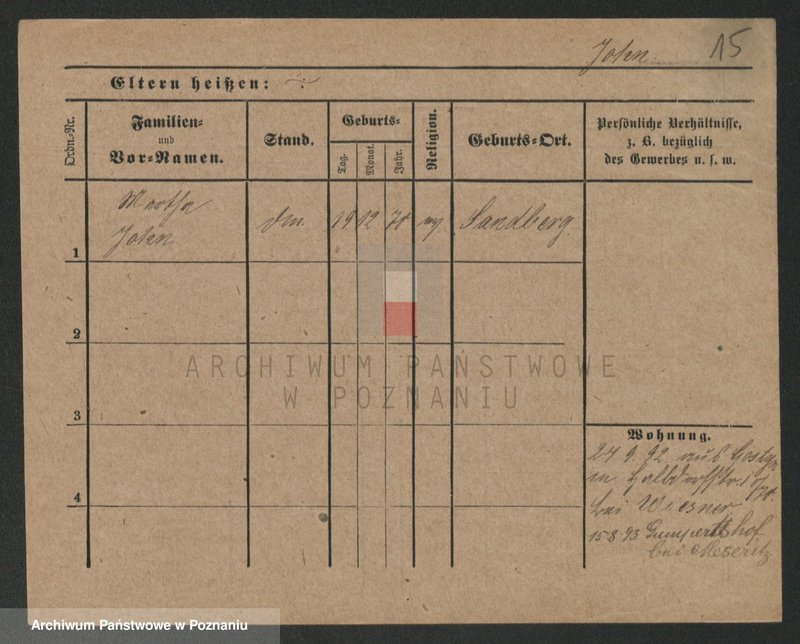 John 15
Eltern heißen:
Ordn.-Nr.
Familien-
und
Vor-Namen.
Stand.
Geburts-
Tag.
Monat.
Jahr.
Religion.
Geburts-Ort.
Persönliche Verhältnisse,
z. B. bezüglich
des Gewerbes u. s. w.
Martha
John
19 12 70 Sandberg
1
2
3
4
ARCHIWUM PAŃSTWOWE
W POZNANIU
Wohnung.
24 9. 92 aus Gostyn
in Halbdorfstr.
bei Wiesner
15-8-93 hof
bei Meseritz
Archiwum Państwowe w Poznaniu